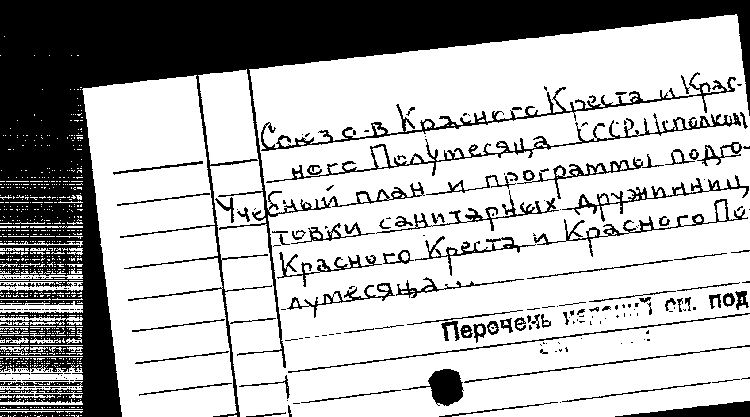 Союз о-в Красного Креста и Крас-
ного Полумесяца СССР. Исполком
Учебный план и программы подго-
товки санитарных дружинниц
Красного Креста и Красного По-
лумесяца...
Перечень изданий см. под